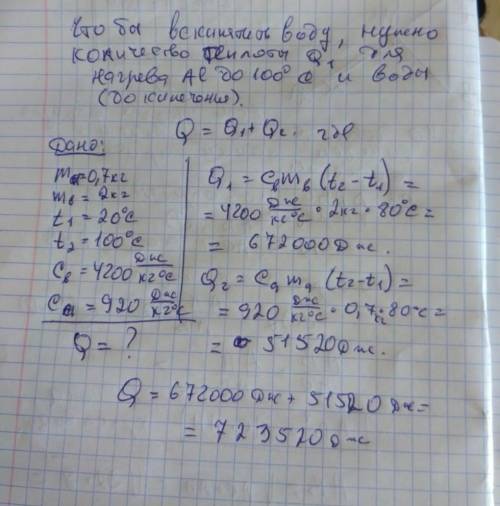 Что бы вскипятить воду, нужно
количество теплоты Q, для
нагрева Al до 100°С и воды
(до кипения).
Q = Q₁ + Q₂. где
Дано:
m = 0,7кг
mв = 2кг
t₁ = 20°С
t₂ = 100°С
Cв = 4200 Дж/кг°С
Cа = 920 Дж/кг°С
Q = ?
Q₁ = Cвmв (t₂ - t₁) =
= 4200 Дж/кг°С · 2кг · 80°С =
= 672000 Дж.
Q₂ = Cа mа (t₂ - t₁) =
= 920 Дж/кг°С · 0,7кг · 80°С =
= 51520 Дж.
Q = 672000 Дж + 51520 Дж =
= 723520 Дж